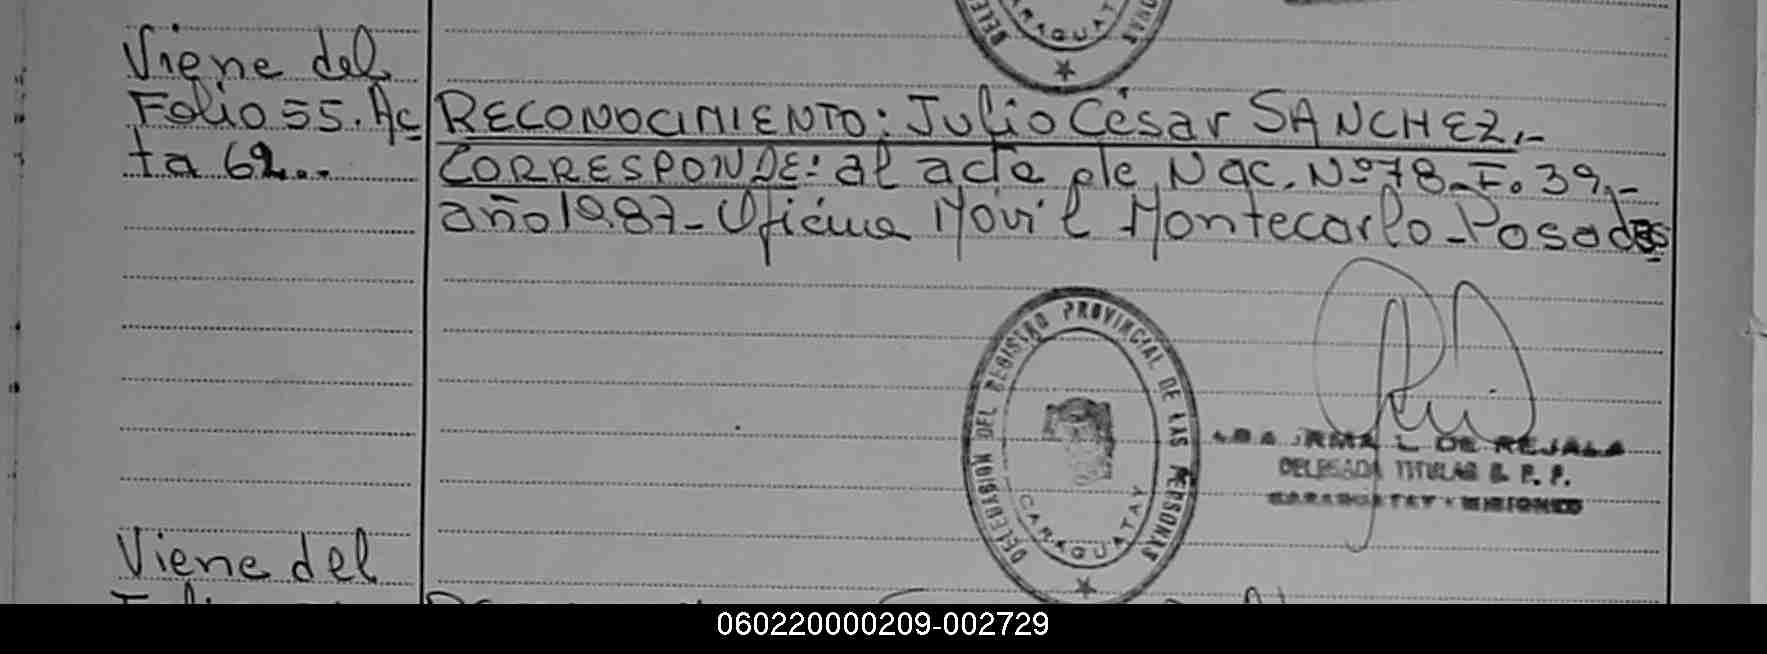 Viene del
Folio 55. Ac
ta 62...
RECONOCIMIENTO: Julio César SANCHEZ.-
CORRESPONDE: al acta de Nac. Nº 78_F. 39.-
año 1987_ Oficina Móvil Montecarlo_Posadas
DELEGACION DEL REGISTRO PROVINCIAL DE LAS PERSONAS
CARAGUATAY
IRMA L. DE REJALA
DELEGADA TITULAR R. P. P.
CARAGUATAY - MISIONES
Viene del
060220000209-002729